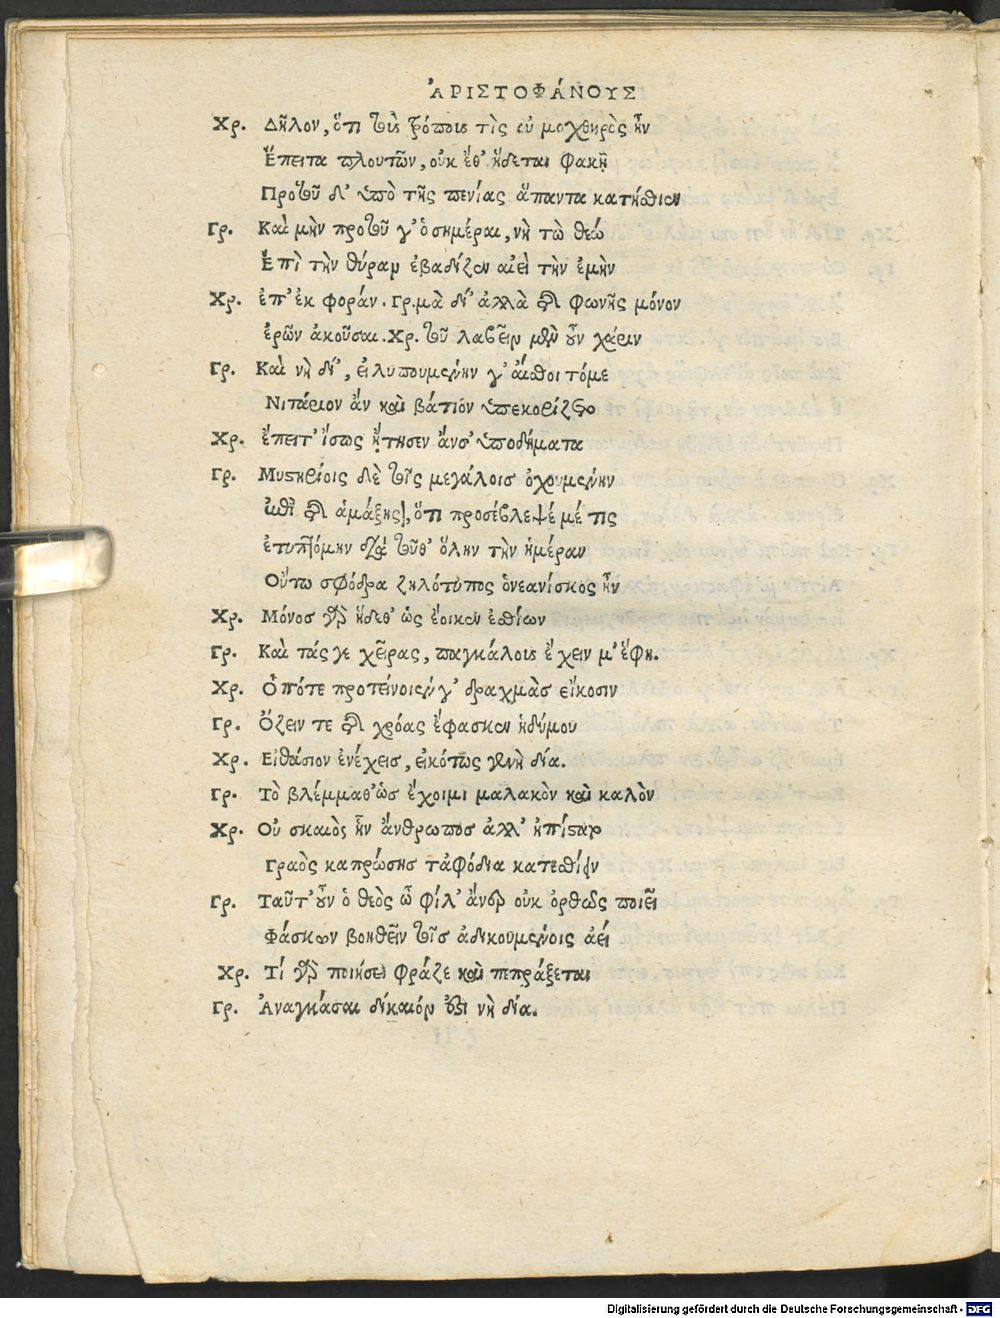 ἈΡΙΣΤΟΦΆΝΟΥΣ
Χρ. Δῆλον, ὅτι τοὺς τρόπους τὶς οὐ μοχθηρὸς ἦν
Ἔπειτα πλουτῶν, οὐκ ἔθ' ἥδεται φακῇ
Προτοῦ δ' ὑπὸ τῆς πενίας ἅπαντα κατήσθιεν
Γρ. Καὶ μὴν προτοῦ γ' ὁσημέραι, νὴ τὼ θεώ
Ἐπὶ τὴν θύραν ἐβάδιζεν αἰεὶ τὴν ἐμὴν
Χρ. ἐπ' ἐκ φοράν. Γρ. μὰ δί' ἀλλὰ τῆς φωνῆς μόνον
ἐρῶν ἀκοῦσαι. Χρ. τοῦ λαβεῖν μὲν οὖν χάριν
Γρ. Καὶ νὴ δί', εἰ λυπουμένην γ' αἴσθοιτό με
Νιτάριον ἄν καὶ βάτιόν ὑπεκορίζετο
Χρ. ἔπειτ' ἴσως ᾔτησεν ἄνσ' ὑποδήματα
Γρ. Μυστηρίοις δὲ τοῖς μεγάλοισ ὀχουμένην
ἐπὶ τῆς ἁμάξης, ὅτι προσέβλεψέ μέ τις
ἐτυπτόμην διὰ τοῦθ' ὅλην τὴν ἡμέραν
Οὕτω σφόδρα ζηλότυπος ὁνεανίσκος ἦν
Χρ. Μόνοσ γὰρ ἥδεθ' ὡς ἔοικεν ἐσθίων
Γρ. Καὶ τάς γε χεῖρας, παγκάλους ἔχειν μ' ἔφη.
Χρ. Ὁπότε προτείνοιέν γ' δραχμὰσ εἴκοσιν
Γρ. Ὄζειν τε τῆς χρόας ἔφασκεν ἡδύμου
Χρ. Εἰ θάσιον ἐνέχεισ, εἰκότως γε νὴ δία.
Γρ. Τὸ βλέμμαθ' ὡς ἔχοιμι μαλακὸν καὶ καλὸν
Χρ. Οὐ σκαιὸς ἦν ἅνθρωποσ ἀλλ' ἠπίστατο
Γραὸς καπρώσησ τἀφόδια κατεσθίειν
Γρ. Ταῦτ' οὖν ὁ θεὸς ὦ φίλ' ἄνερ οὐκ ὀρθῶς ποιεῖ
Φάσκων βοηθεῖν τοῖσ ἀδικουμένοις ἀεί
Χρ. Τί γὰρ ποιήσει φράζε καὶ πεπράξεται
Γρ. Ἀναγκάσαι δίκαιόν ἐστι νὴ δία.
Digitalisierung gefördert durch die Deutsche Forschungsgemeinschaft - DFG